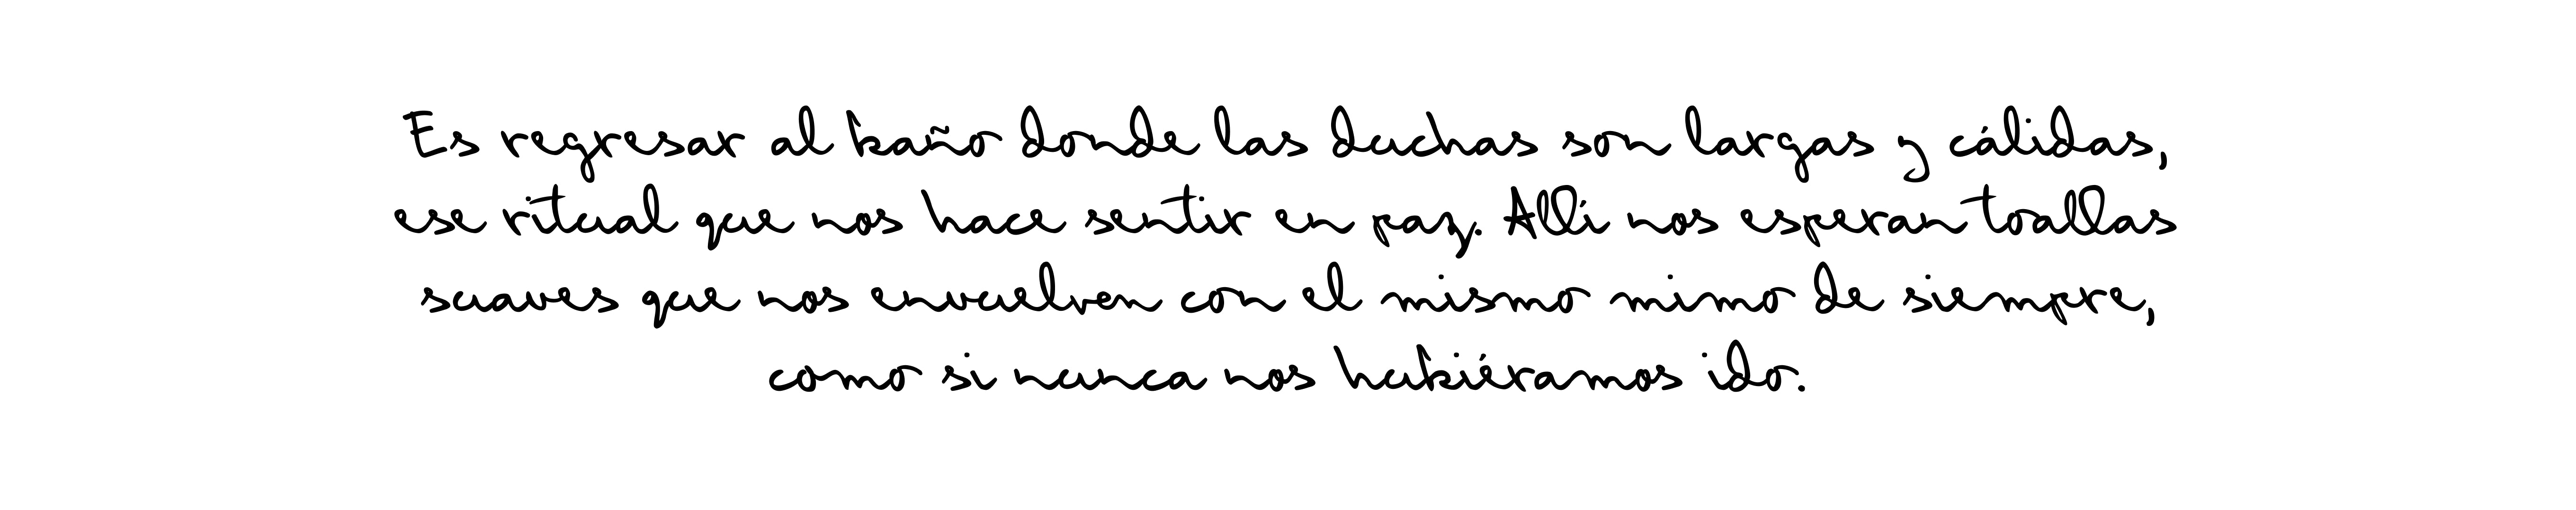 Es regresar al baño donde las duchas son largas y cálidas,
ese ritual que nos hace sentir en paz. Allí nos esperan toallas
suaves que nos envuelven con el mismo mimo de siempre,
como si nunca nos hubiéramos ido.